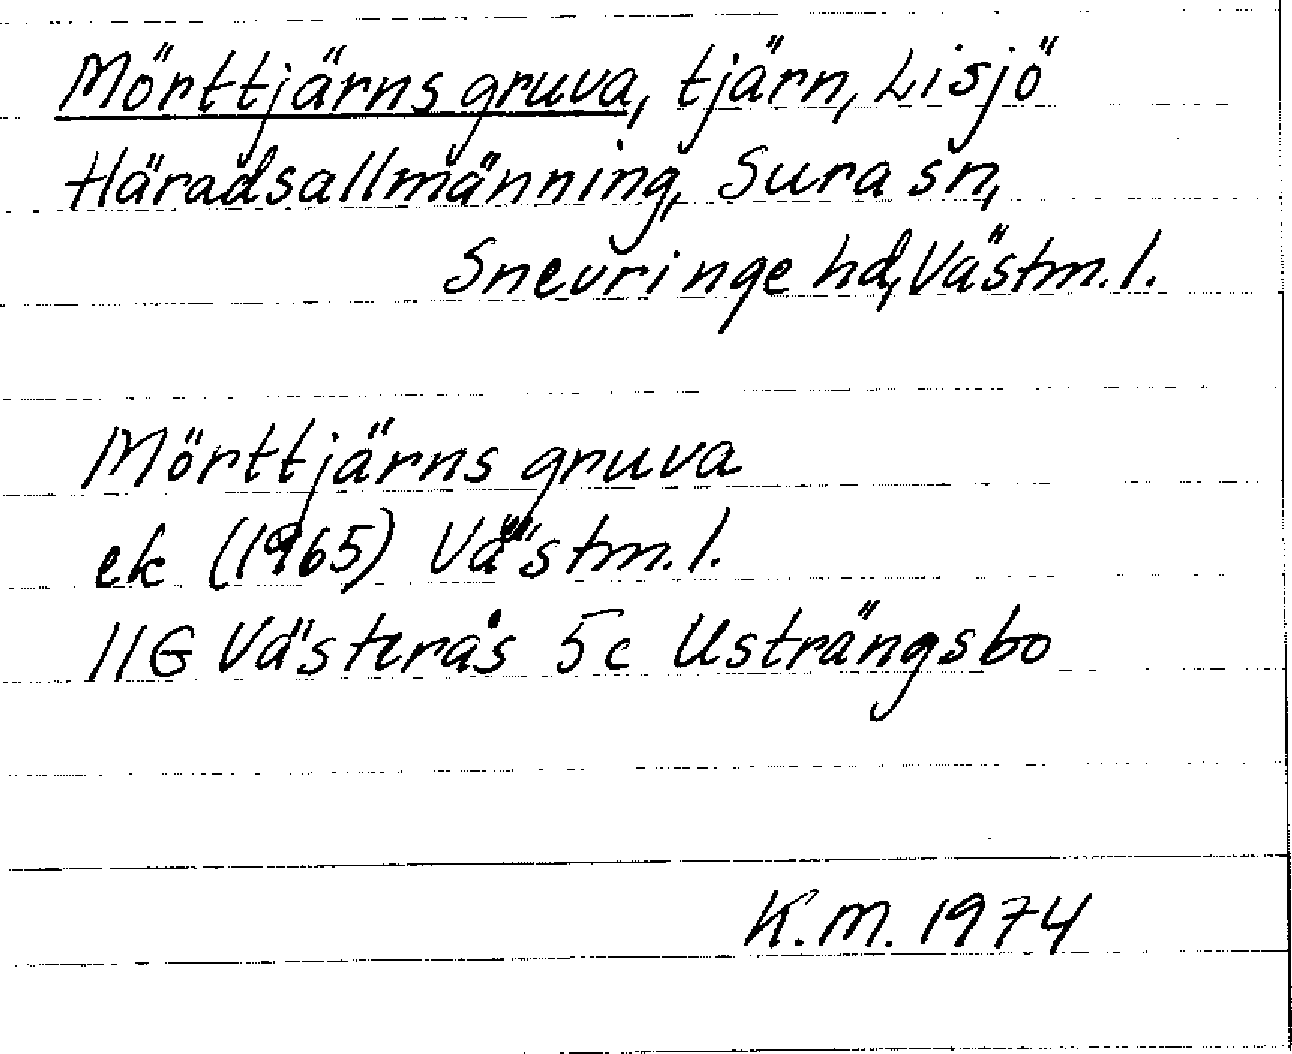 Mörttjärns gruva, tjärn, Lisjö
Häradsallmänning, Sura sn,
Snevringe hd, Västm. l.
Mörttjärns gruva
ek (1965) Västm. l.
11G Västerås 5c Usträngsbo
K.M. 1974